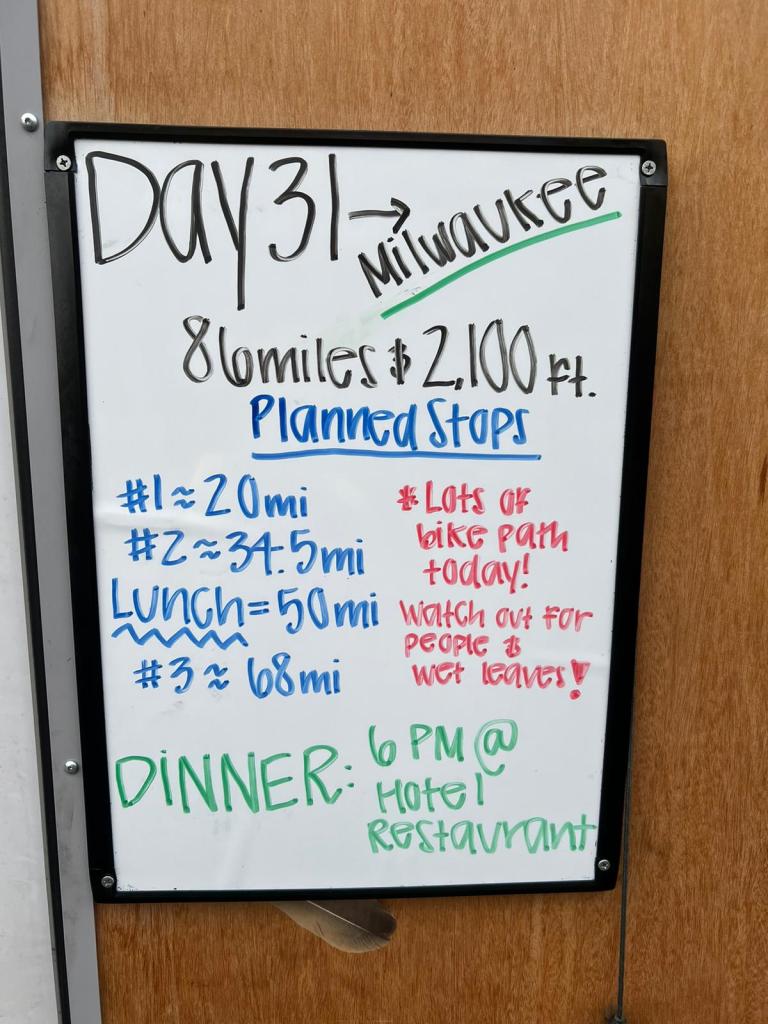 Day 31 → Milwaukee
86 miles & 2,100 ft.
Planned Stops
#1 ≈ 20mi
#2 ≈ 34.5mi
Lunch = 50mi
#3 ≈ 68mi
* Lots of
bike path
today!
Watch out for
people &
wet leaves!
DINNER: 6 PM @
Hotel
Restaurant